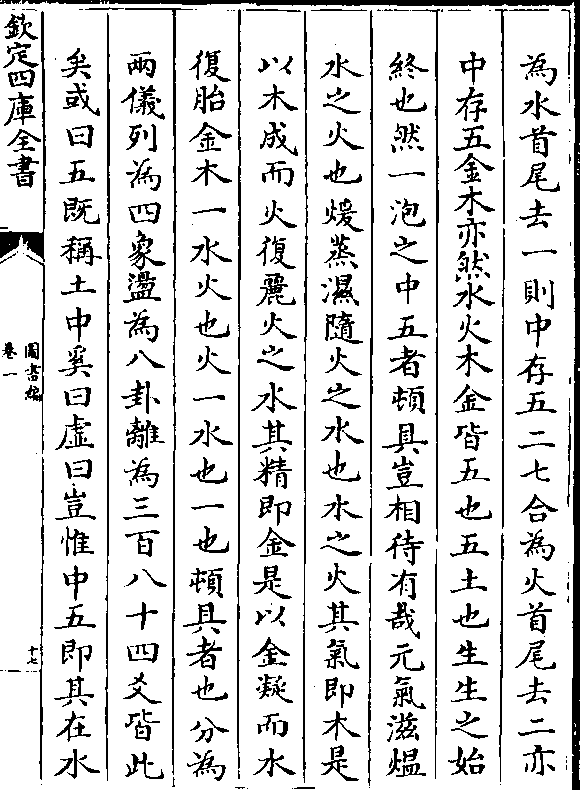 為水首尾去一則中存五二七合為火首尾去二亦
中存五金木亦然水火木金皆五也五土也生生之始
終也然一泡之中五者頓具豈相待有哉元氣滋熅
水之火也煖蒸濕隨火之水也水之火其氣即木是
以木成而火復麗火之水其精即金是以金凝而水
復胎金木一水火也火一水也一也頓具者也分為
兩儀列為四象盪為八卦離為三百八十四爻皆此
矣或曰五既稱土中奚曰虛曰豈惟中五即其在水
欽定四庫全書
圖書編
卷一
十七